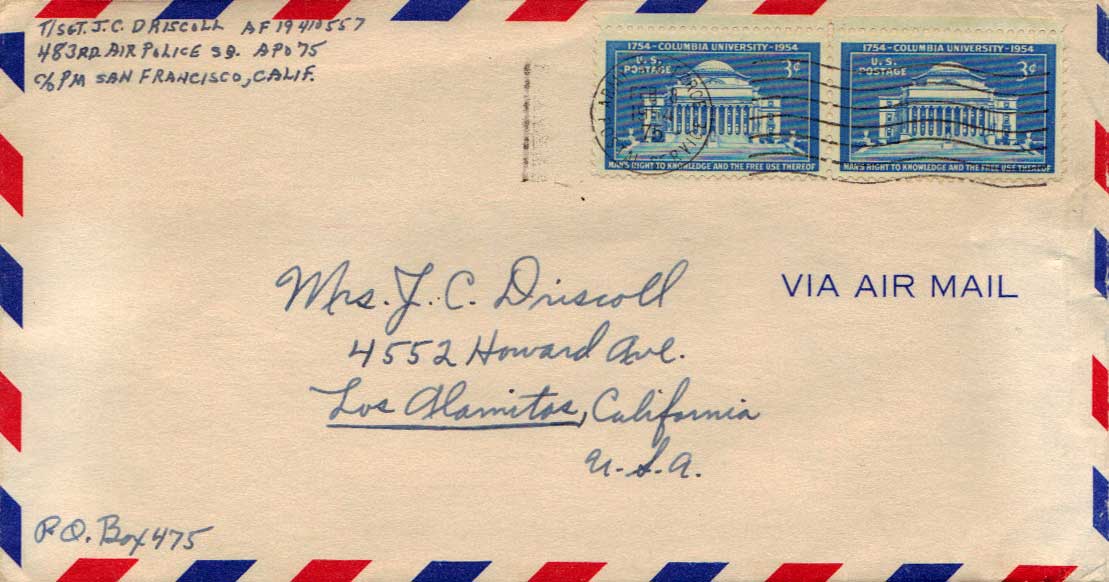 T/SGT. J. C. DRISCOLL AF 19 410 557
483RD AIR POLICE SQ. APO 75
C/O PM SAN FRANCISCO, CALIF.
1754-COLUMBIA UNIVERSITY-1954
U.S. POSTAGE 3¢
MAN'S RIGHT TO KNOWLEDGE AND THE FREE USE THEREOF
1754-COLUMBIA UNIVERSITY-1954
U.S. POSTAGE 3¢
MAN'S RIGHT TO KNOWLEDGE AND THE FREE USE THEREOF
75
VIA AIR MAIL
Mrs. J. C. Driscoll
4552 Howard Ave.
Los Alamitos, California
U.S.A.
P.O. Box 475